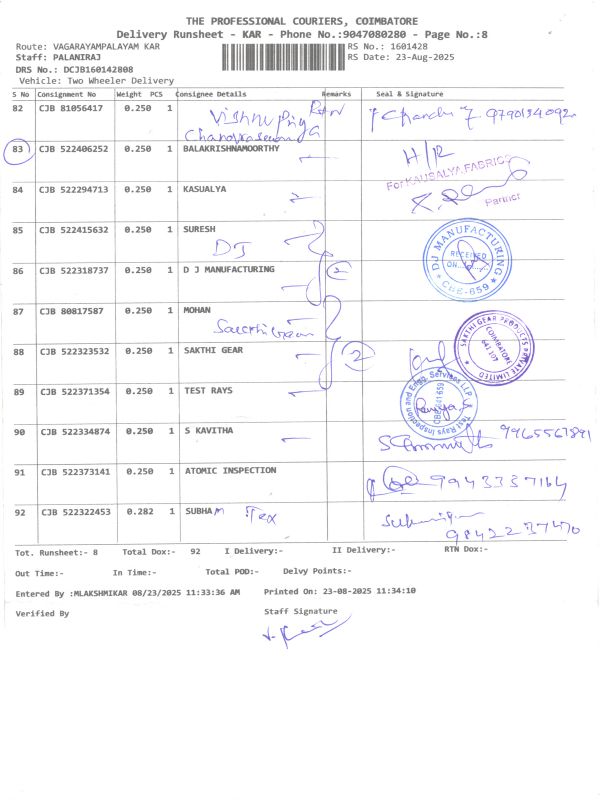 THE PROFESSIONAL COURIERS, COIMBATORE
Delivery Runsheet - KAR - Phone No.:9047080280 - Page No.:8
Route: VAGARAYAMPALAYAM KAR RS No.: 1601428
Staff: PALANIRAJ RS Date: 23-Aug-2025
DRS No.: DCJB160142808
Vehicle: Two Wheeler Delivery
S No Consignment No Weight PCS Consignee Details Remarks Seal & Signature
82 CJB 81056417 0.250 1 Vishnu Priya
83 CJB 522406252 0.250 1 BALAKRISHNAMOORTHY H/R
For KAUSALYA FABRICS
84 CJB 522294713 0.250 1 KASUALYA Partner
85 CJB 522415632 0.250 1 SURESH
DJ
DJ MANUFACTURING RECEIVED ON CBE-659
86 CJB 522318737 0.250 1 D J MANUFACTURING 2
87 CJB 80817587 0.250 1 MOHAN
SAKTHI GEAR PRODUCTS PRIVATE LIMITED COIMBATORE 641 107
88 CJB 522323532 0.250 1 SAKTHI GEAR 2
89 CJB 522371354 0.250 1 TEST RAYS
Test Rays Inspection and Engg. Services LLP CBE-641 659
90 CJB 522334874 0.250 1 S KAVITHA 9965567891
91 CJB 522373141 0.250 1 ATOMIC INSPECTION 9943337164
92 CJB 522322453 0.282 1 SUBHAM Tex
9842237470
Tot. Runsheet:- 8 Total Dox:- 92 I Delivery:- II Delivery:- RTN Dox:-
Out Time:- In Time:- Total POD:- Delvy Points:-
Entered By :MLAKSHMIKAR 08/23/2025 11:33:36 AM Printed On: 23-08-2025 11:34:10
Verified By Staff Signature